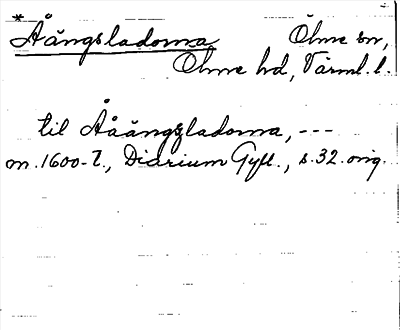 *Åängsladorna Ölme sn,
Ölme hd, Värml. l.
til Åååängzladorna, ---
m. 1600-t., Diarium Gyll., s. 32. orig.